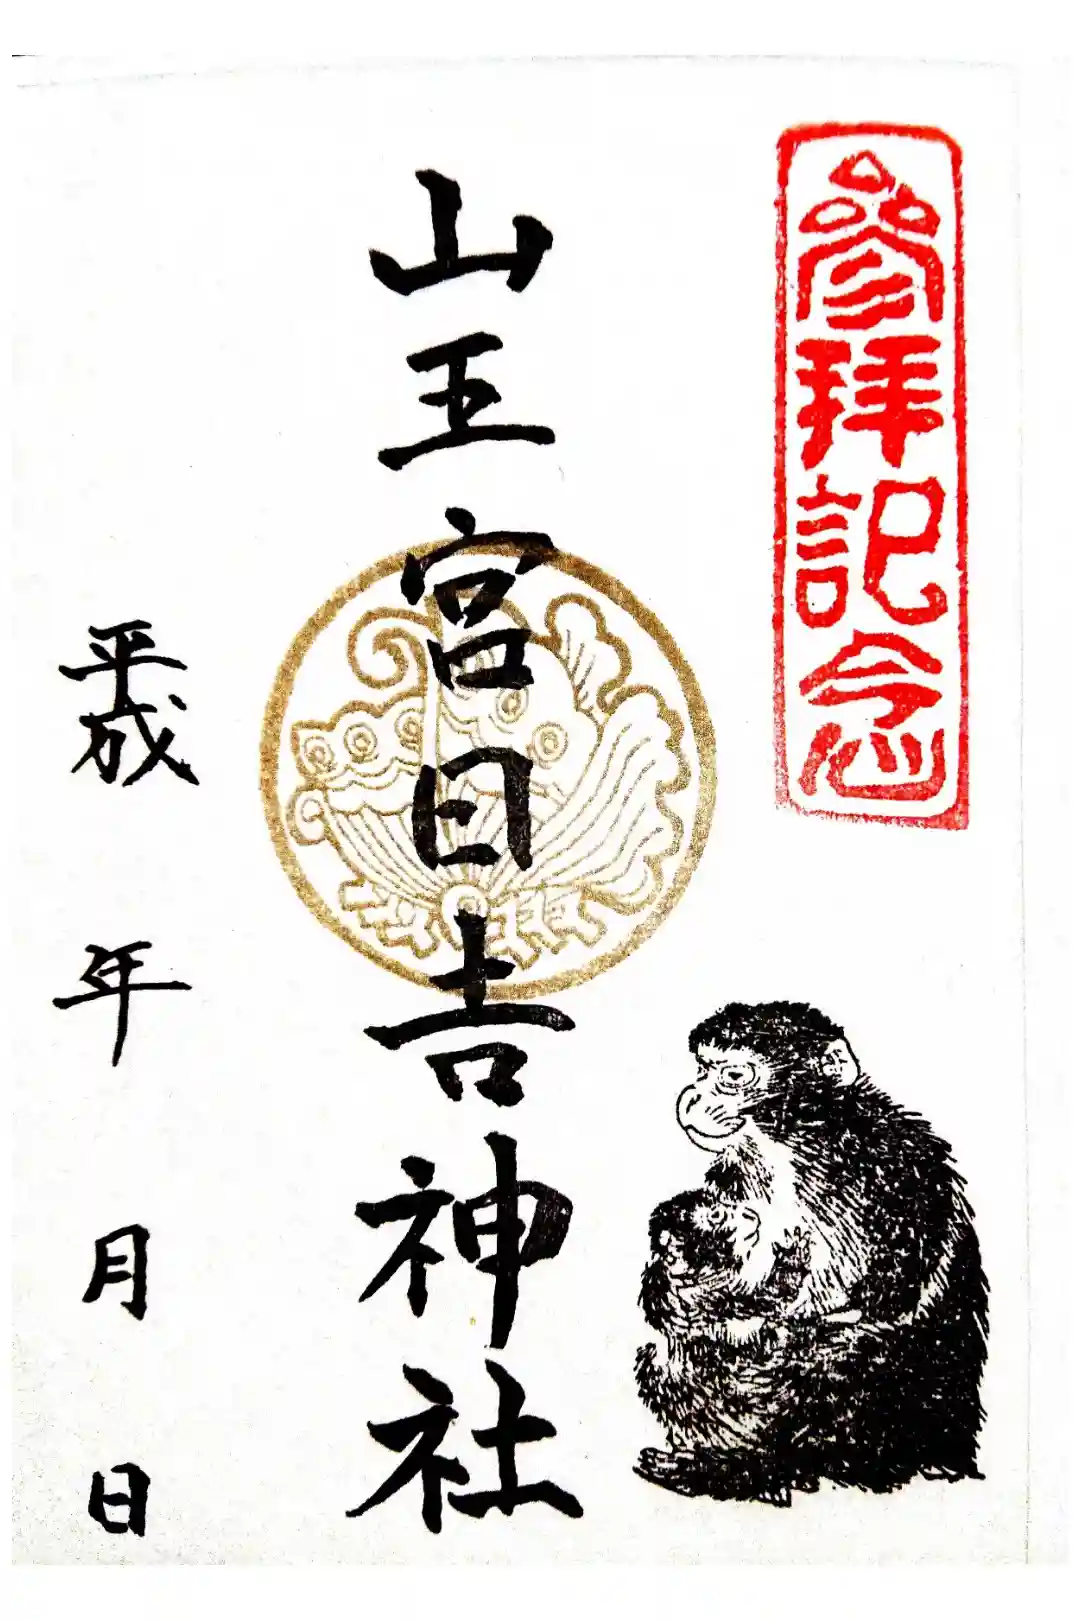 参拝記念
山王宮日吉神社
平成 年 月 日